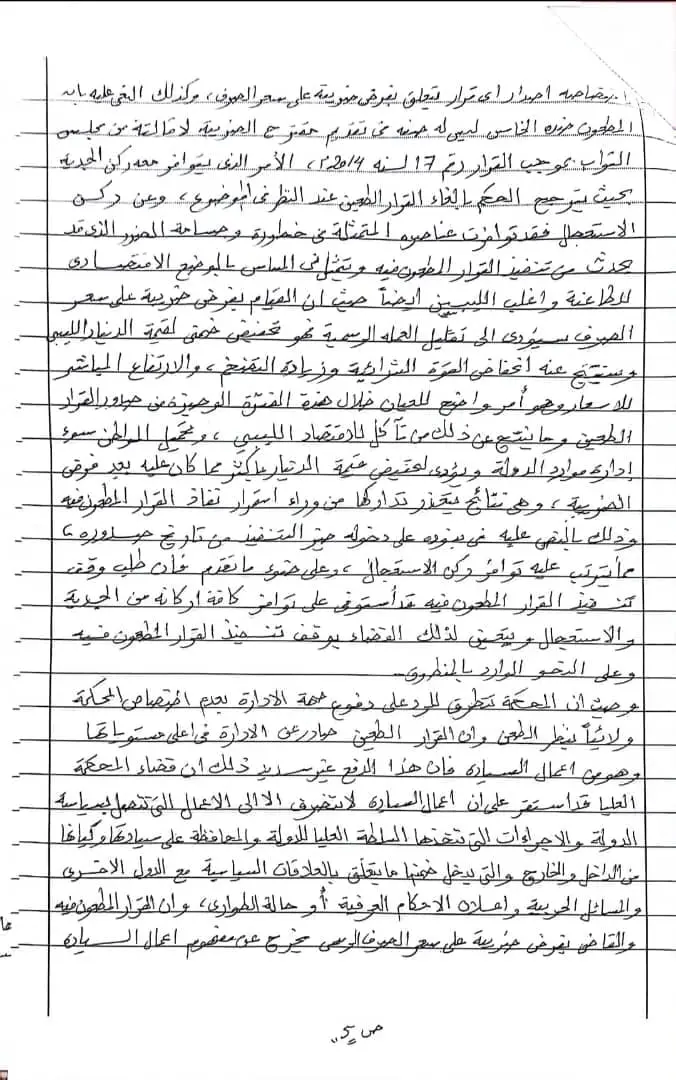 اختصاصه اصدار اي قرار يتعلق بفرض ضريبة على سعر الصرف، وكذلك النعي عليه بان
المطعون ضده الخامس ليس له صفة في تقديم مقترح الضريبة لاقالتة من مجلس
النواب بموجب القرار رقم 17 لسنه 2014م، الأمر الذى يتوافر معه ركن الجدية
بحيث يترجح الحكم بإلغاء القرار الطعين عند النظر في الموضوع، وعن ركن
الاستعجال فقد توافرت عناصره المتمثلة في خطورة وجسامة الضرر الذى قد
يحدث من تنفيذ القرار المطعون فيه ويتمثل في المساس بالوضع الاقتصادى
للطاعنة واغلب الليبيين ايضاً حيث ان القيام بفرض ضريبة على سعر
الصرف سيؤدى الى تقليل العمله الرسمية فهو تخفيض ضمني لقيمة الدينار الليبي
وستنتج عنه انخفاض القوة الشرائية وزيادة التضخم، والارتفاع المباشر
للاسعار وهو أمر واضح للعيان خلال هذه الفترة الوجيزة من صدور القرار
الطعين وما ينتج عن ذلك من تآكل للاقتصاد الليبي، وتحميل المواطن سوء
إدارة موارد الدولة ويؤدى لتخفيض قيمة الدينار بأكثر مما كان عليه بعد فرض
الضريبة، وهى نتائج يتعذر تداركها من وراء استمرار نفاذ القرار المطعون فيه
وذلك بالنص عليه في بنوده على دخوله حيز التنفيذ من تاريخ صدوره،
مما يترتب عليه توافر ركن الاستعجال، وعلى ضوء ما تقدم فان طلب وقف
تنفيذ القرار المطعون فيه قد أستوفى على توافر كافة اركانه من الجدية
والاستعجال ويتعين لذلك القضاء بوقف تنفيذ القرار المطعون فيه
وعلى النحو الوارد بالمنطوق.
وحيث ان المحكمة تتطرق للرد على دفوع جهة الادارة بعدم اختصاص المحكمة
ولائياً بنظر الطعن وان القرار الطعين صادر عن الادارة في اعلى مستوياتها
وهو من اعمال السيادة فان هذا الدفع غير سديد ذلك ان قضاء المحكمة
العليا قد استقر على ان اعمال السيادة لا تنصرف الا الى الاعمال التى تتصل بسياسة
الدولة والاجراءات التى تتخذها السلطة العليا للدولة والمحافظة على سيادتها وكيانها
من الداخل والخارج والتى يدخل ضمنها ما يتعلق بالعلاقات السياسية مع الدول الاخرى
والمسائل الحربية واعلان الاحكام العرفية أو حالة الطوارى، وان القرار المطعون فيه
والقاضي بفرض ضريبة على سعر الصرف الرسمى يخرج عن مفهوم اعمال السيادة
ص 5